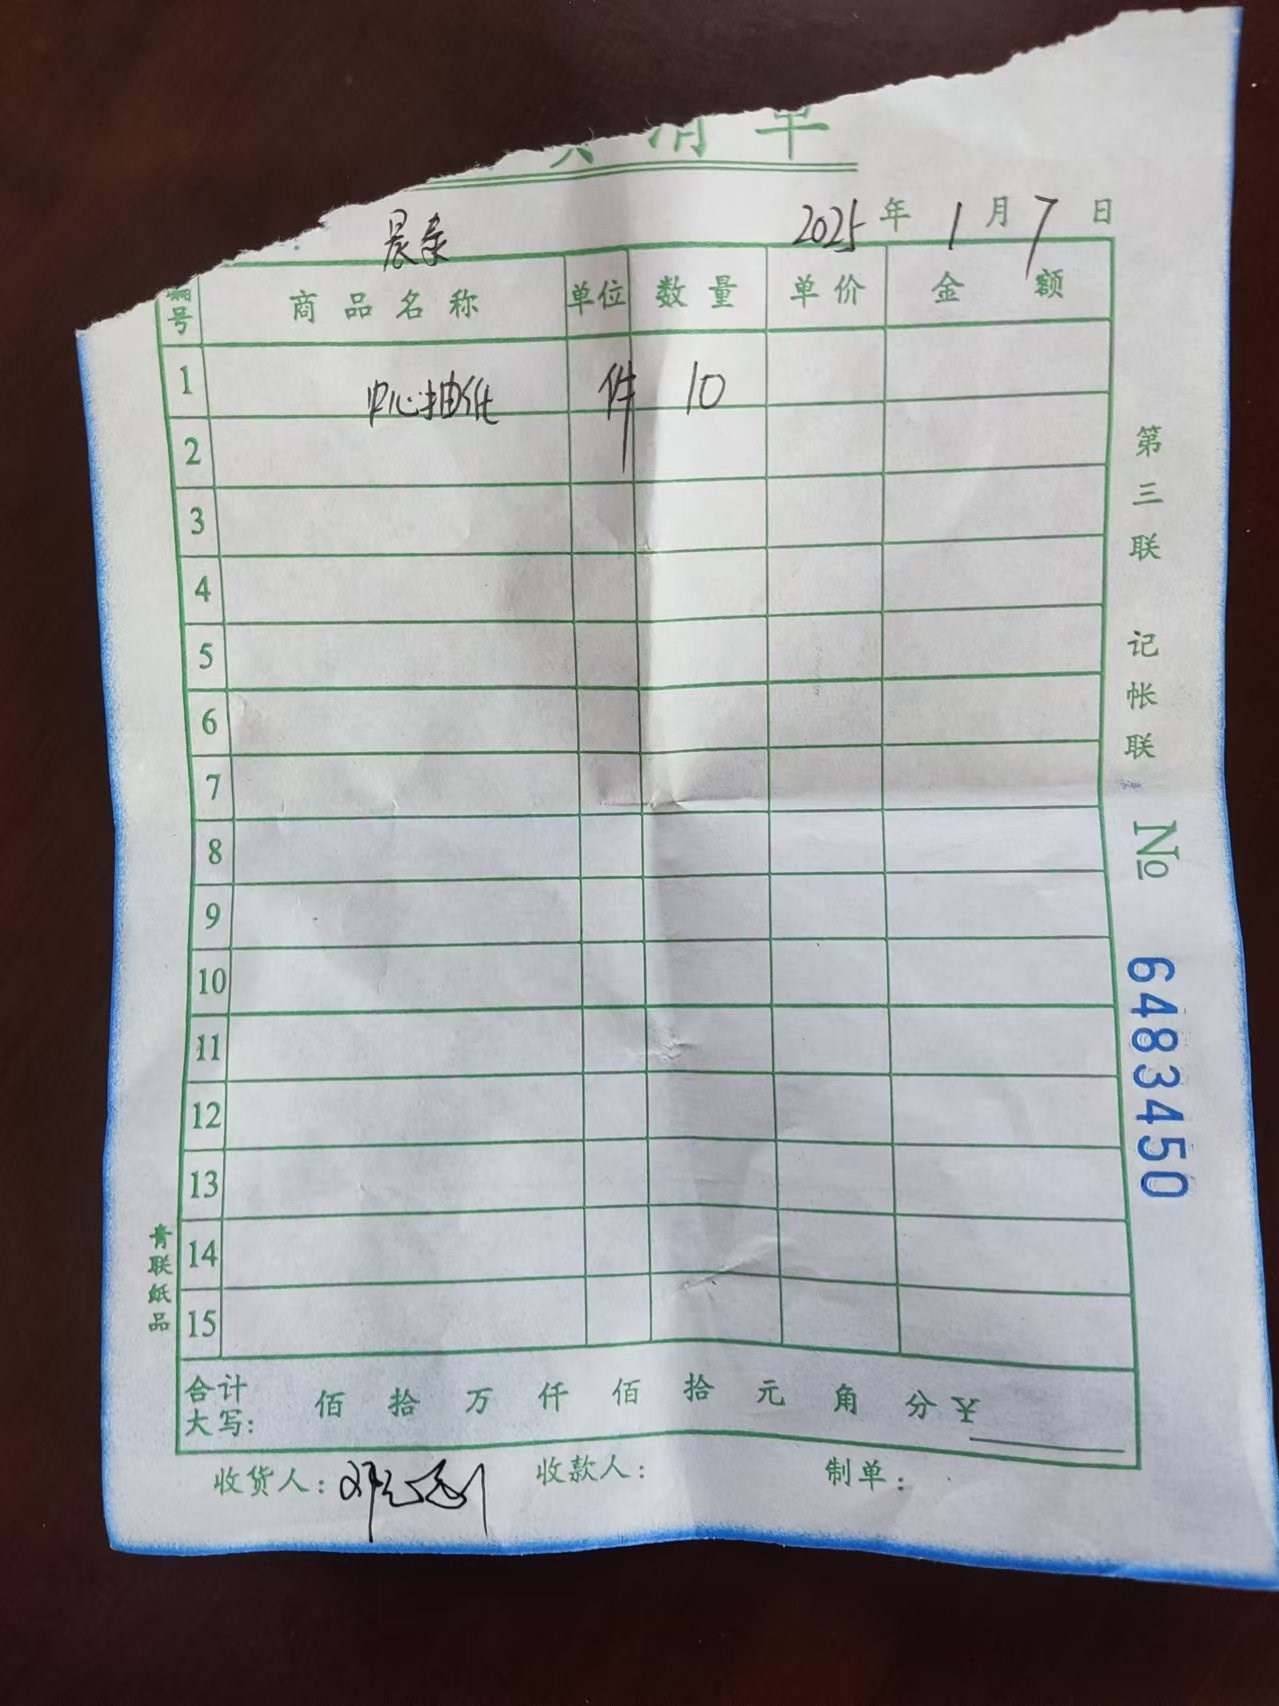 清单
晨
2025年1月7日
编号 商品名称 单位 数量 单价 金额
1 中心抽纸 件 10
2
3
4
5
6
7
8
9
10
11
12
13
14
15
合计大写: 佰 拾 万 仟 佰 拾 元 角 分 ¥
收货人: 收款人: 制单:
第三联 记帐联
№ 6483450
青联纸品